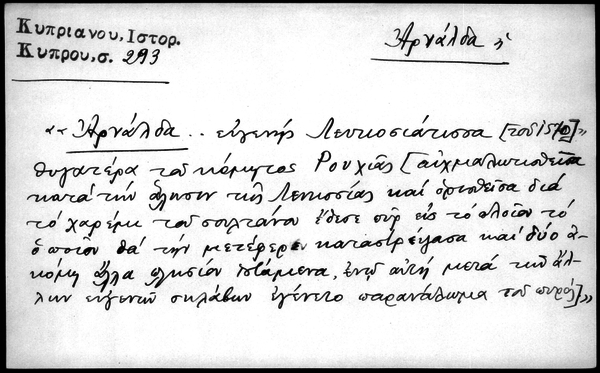 Κυπριανου, Ιστορ.
Κυπρου, σ. 293
Ἀρνάλδα ἡ
«Ἀρνάλδα .. εὐγενὴς Λευκοσιάτισσα [τοῦ 1570]»
θυγατέρα τοῦ κόμητος Ρουχιᾶς [αἰχμαλωτισθεῖσα
κατὰ τὴν ἅλωσιν τῆς Λευκωσίας καὶ ὁρισθεῖσα διὰ
τὸ χαρέμι τοῦ σουλτάνου ἔθεσε πῦρ εἰς τὸ πλοῖον τὸ
ὁποῖον θὰ τὴν μετέφερεν καταστρέψασα καὶ δύο ἀ-
κόμη ἄλλα πλησίον ἱστάμενα, ἐνῷ αὐτὴ μετὰ τῶν ἄλ-
λων εὐγενῶν σκλάβων ἐγένετο παρανάλωμα τοῦ πυρός]»